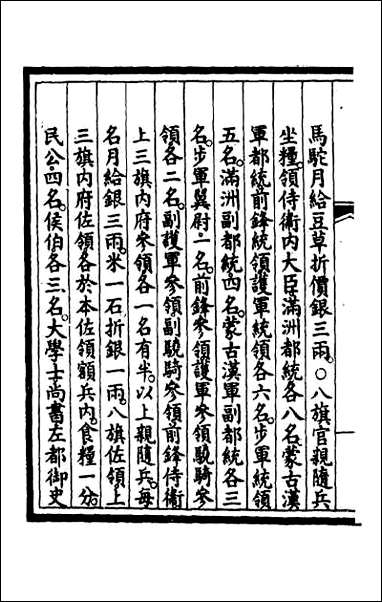 馬駝月給豆草折價銀三兩。○八旗官親隨兵
坐糧。領侍衞內大臣滿洲都統各八名。蒙古漢
軍都統前鋒統領護軍統領各六名。步軍統領
五名。滿洲副都統四名。蒙古漢軍副都統各三
名。步軍翼尉二名。前鋒參領護軍參領驍騎參
領各二名。副護軍參領副驍騎參領前鋒侍衞
上三旗內府參領各一名有半。以上親隨兵。每
名月給銀三兩。米一石折銀一兩。八旗佐領上
三旗內府佐領各於本佐領額兵內。食糧一分。
民公四名。侯伯各三名。大學士尚書左都御史